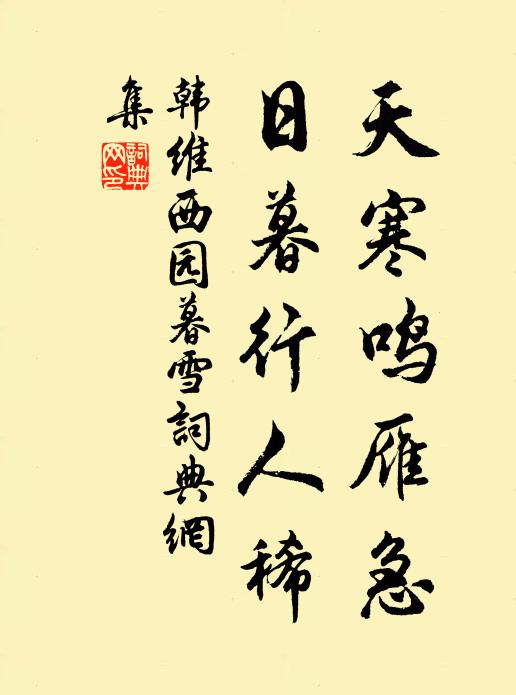 天寒鸣雁急
日暮行人稀
韩维西园暮雪詞典網
集
詞典
网印